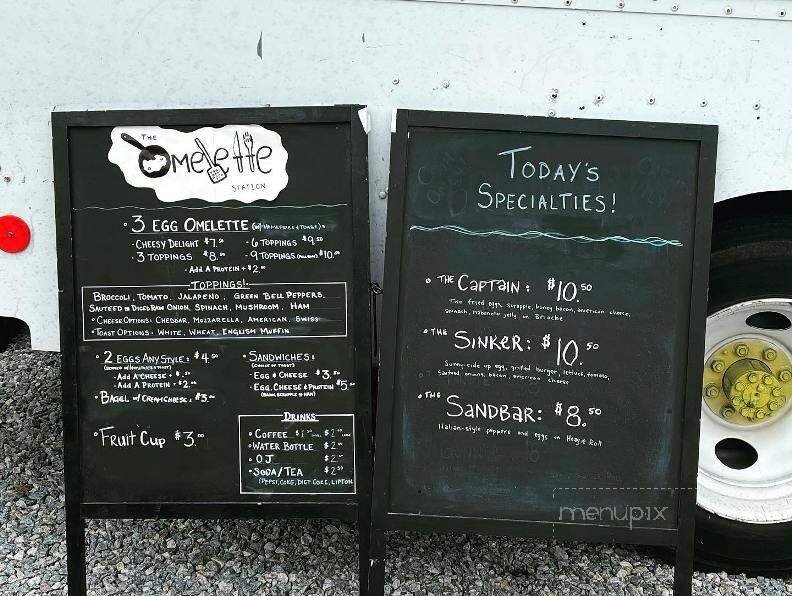 THE
Omelette
STATION
• 3 EGG OMELETTE
• CHEESY DELIGHT $7.
• 6 TOPPINGS $9.50
• 3 TOPPINGS $8.
• 9 TOPPINGS $10.00
• ADD A PROTEIN + $2.00
TOPPINGS!
BROCCOLI, TOMATO, JALAPENO, GREEN BELL PEPPERS,
SAUTEED OR DICED RAW ONION, SPINACH, MUSHROOM, HAM
• CHEESE OPTIONS: CHEDDAR, MOZZARELLA, AMERICAN, SWISS
• TOAST OPTIONS: WHITE, WHEAT, ENGLISH MUFFIN
• 2 EGGS ANY STYLE: $4.50
- ADD A CHEESE +
- ADD A PROTEIN + $2.00
• BAGEL W/ CREAM CHEESE: $3.00
• FRUIT CUP $3.00
• SANDWICHES:
• EGG & CHEESE $3.50
• EGG, CHEESE & PROTEIN $5.00
DRINKS
• COFFEE
• WATER BOTTLE $2.00
• OJ
• SODA/TEA $2.50
(PEPSI, COKE, DIET COKE, LIPTON
TODAY'S
SPECIALTIES!
• THE CAPTAIN: $10.50
Two fried eggs, scrapple, honey bacon, american cheese,
spinach, habanero jelly on Brioche
• THE SINKER: $10.50
Sunny side up egg, grilled burger, lettuce, tomato,
sauteed onions, bacon, american cheese
• THE SANDBAR: $8.50
Italian-style peppers and eggs on Hoagie Roll
menupix